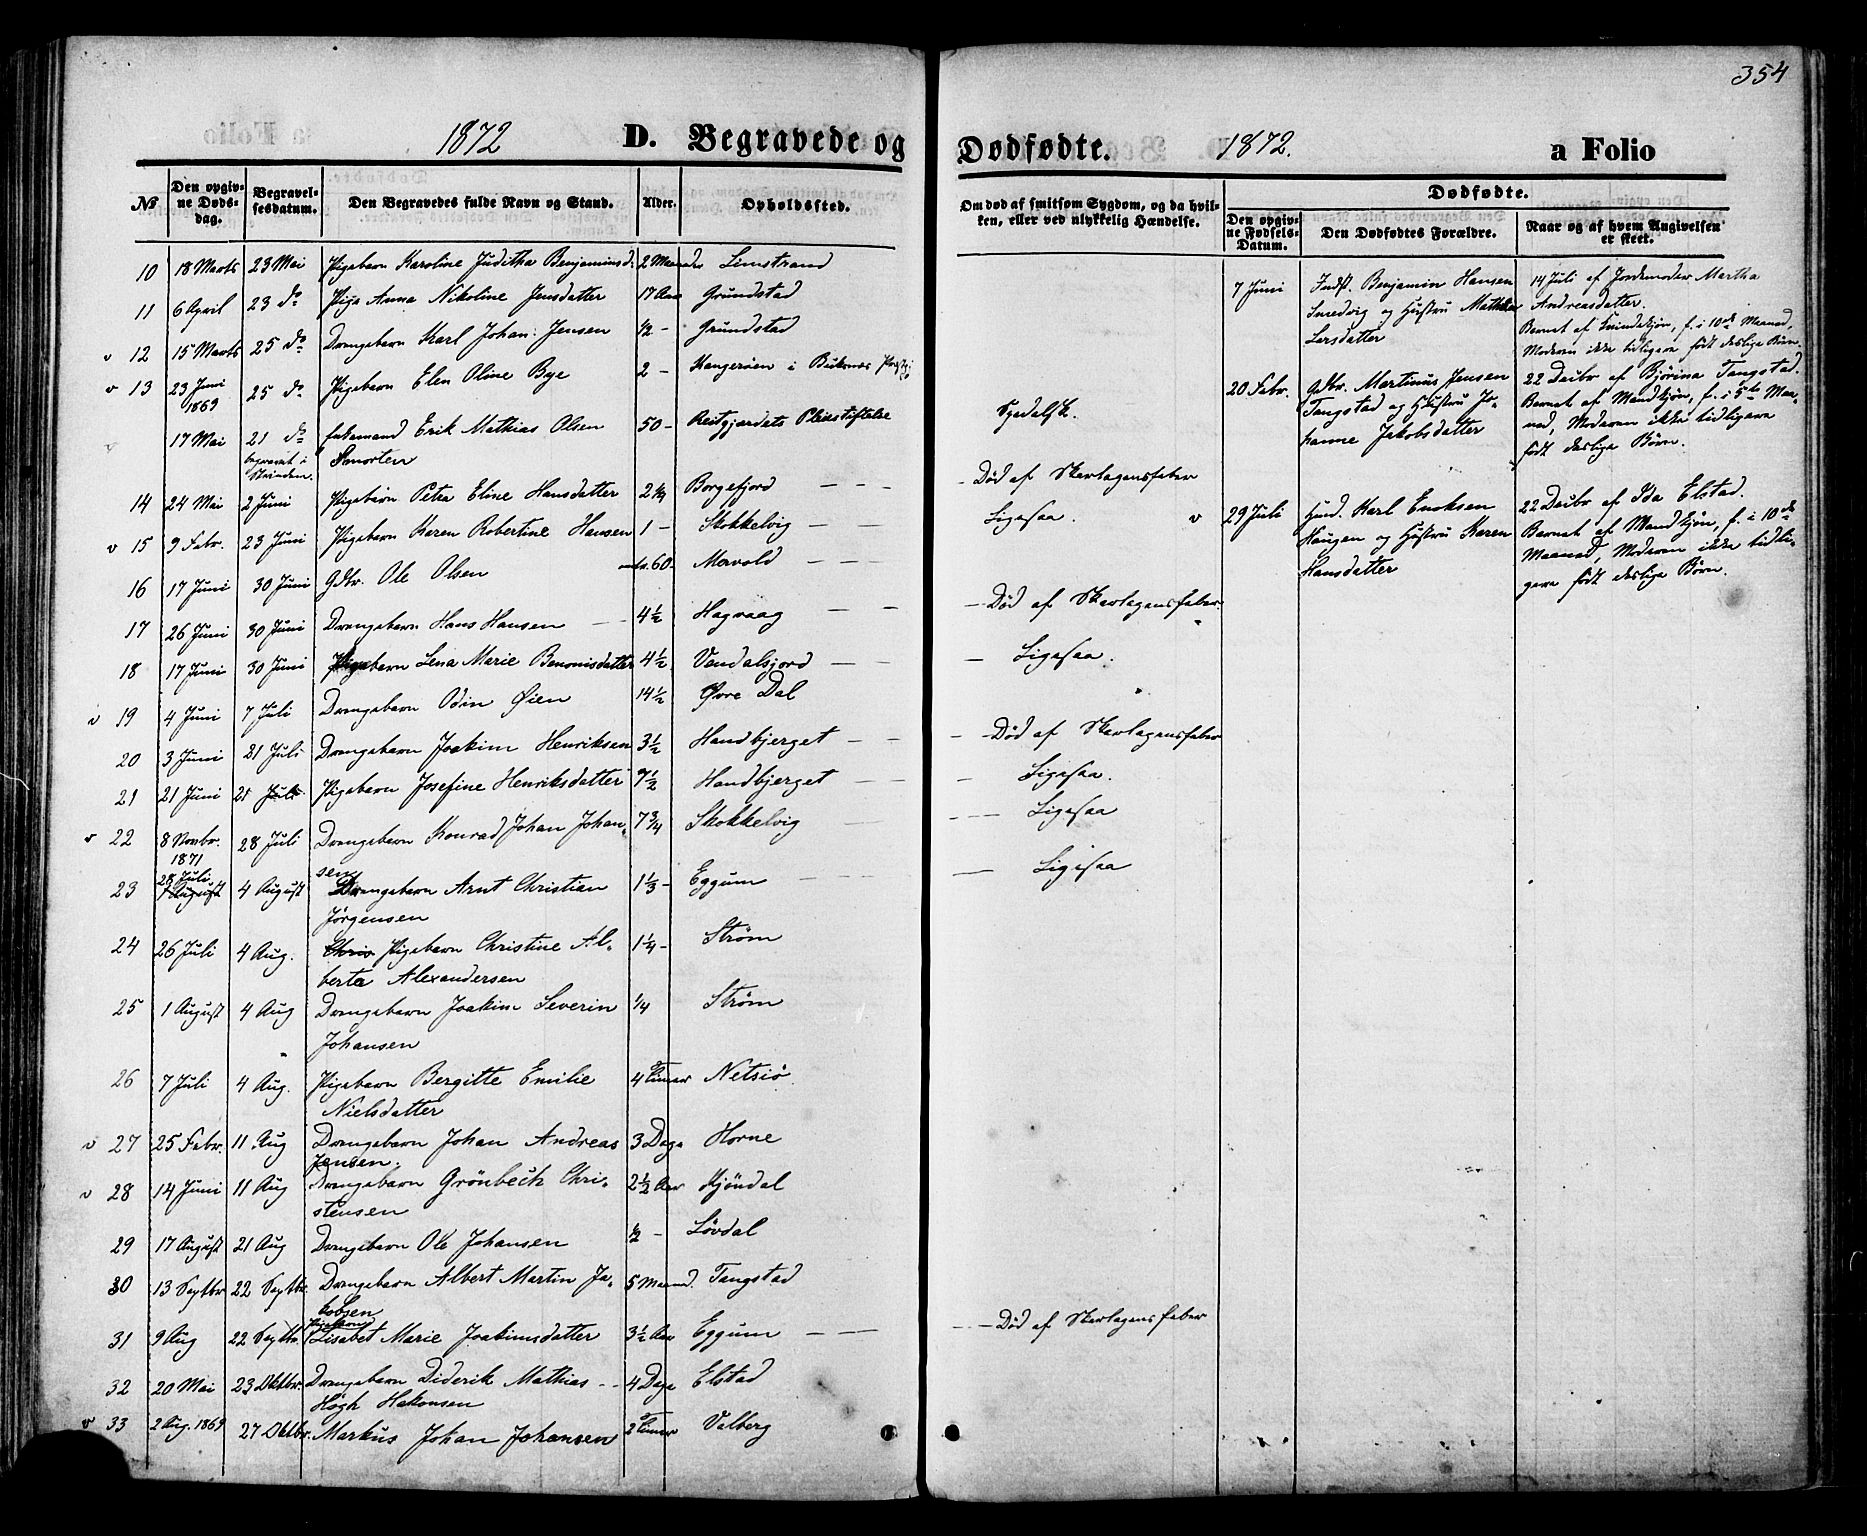 354
1872 D. Begravede og Dødfødte. 1872. a Folio
№ Den opgivne Dødsdag. Begravelsesdatum. Den Begravedes fulde Navn og Stand. Alder. Opholdssted.
10 18 Marts 23 Mai Pigebarn Karoline Juditha Benjaminsd. 2 Maaneder Limstrand
11 6 April 23 do Pige Anna Nikoline Jensdatter 17 Aar Grundstad
v 12 15 Marts 25 do Drengebarn Karl Johan Jensen ½ - Grundstad
v 13 23 Juni 1869 25 do Pigebarn Elen Oline Bye 2 - Hangerøen i Buksnes
17 Mai 21 do Erik Mathias Olsen 50 - Reitgjerdets Pleiestiftelse
begravet i Strinden. Smorten
14 24 Mai 2 Juni Pigebarn Petra Eline Hansdatter 2¼ Borgefjord — —
v 15 9 Febr. 23 Juni Pigebarn Karen Robertine Hansen 1 - Skokkelvig — —
16 17 Juni 30 Juni Gdbr. Ole Olsen 60 - Mervold — — —
17 26 Juni 30 Juni Drengebarn Hans Hansen — 4½ Hagvaag — —
18 17 Juni 30 Juni Pigebarn Lena Marie Benonisdatter 4½ Vendalsjord — —
v 19 4 Juni 7 Juli Drengebarn Odin Øien 14½ Øvre Dal
20 3 Juni 21 Juli Drengebarn Joakim Henriksen 3½ Handbjerget — —
21 21 Juni 21 Juli Pigebarn Josefine Henriksdatter 7½ Handbjerget — —
v 22 8 Novbr. 1871 28 Juli Drengebarn Konrad Johan Johan-
sen 7¾ Skokkelvig — —
23 28 Juli 4 August Drengebarn Arnt Christian 1⅓ - Eggum — — —
Jørgensen
24 26 Juli 4 Aug. Chris Pigebarn Christine Al- 1¼ - Strøm
berta Alexandersen
25 1 August 4 Aug Drengebarn Joakim Severin ¼ Strøm
Johansen
26 7 Juli 4 Aug. Pigebarn Bergitte Emilie 4 Timer Netsiø
Nielsdatter
v 27 25 Febr. 11 Aug Drengebarn Johan Andreas 3 Dage Horne
Jensen.
v 28 14 Juni 11 Aug Drengebarn Grönbech Chri- 2½ Aar Mjöndal
stensen
29 17 August 21 Aug Drengebarn Ole Johansen ½ - Lövdal
30 13 Septbr 22 Septbr. Drengebarn Albert Martin Ja- 5 Maaned. Tangstad
kobsen
31 9 Aug 22 Septbr. Pigebarn Lisabet Marie Joakimsdatter 3½ Aar Eggum — —
32 20 Mai 23 Oktbr. Drengebarn Diderik Mathias - - 4 Dage Elstad
Høgh Hakonsen
v 33 2 Aug. 1869 27 Oktbr. Markus Johan Johansen 2 Timer Valberg
Om død af smitsom Sygdom, og da hvilken, eller ved ulykkelig Hændelse.
Spedalsk.
- Død af Skarlagensfeber
Ligesaa.
- Død af Skarlagensfeber
- Ligesaa.
- Død af Skarlagensfeber
- Ligesaa.
- - - Ligesaa
— Ligesaa
- - - Død af Skarlagensfeber
Dødfødte.
Den opgivne Fødsels-Datum. Den Dødfødtes Forældre. Naar og af hvem Angivelsen er skeet.
7 Juni Indst. Benjamin Hansen
Smedvig og Hustru Mathea
Larsdatter
14 Juli af Jordemoder Martha
Andreasdatter.
Barnet af Kvindekjøn, f. i 10de Maaned,
Moderen ikke tidligere født deslige Børn.
20 Febr. Gdbr. Martinus Jensen
Tangstad og Hustru Jo-
hanne Jakobsdatter
22 Decbr af Bjørina Tangstad.
Barnet af Mandkjøn, f. i 5te Maa-
ned, Moderen ikke tidligere
født deslige Børn.
v 29 Juli Husm. Karl Enoksen
Haugen og Hustru Karen
Hansdatter
22 Decbr af Ida Elstad.
Barnet af Mandkjøn, f. i 10de
Maaned, Moderen ikke tidli-
gere født deslige Børn.